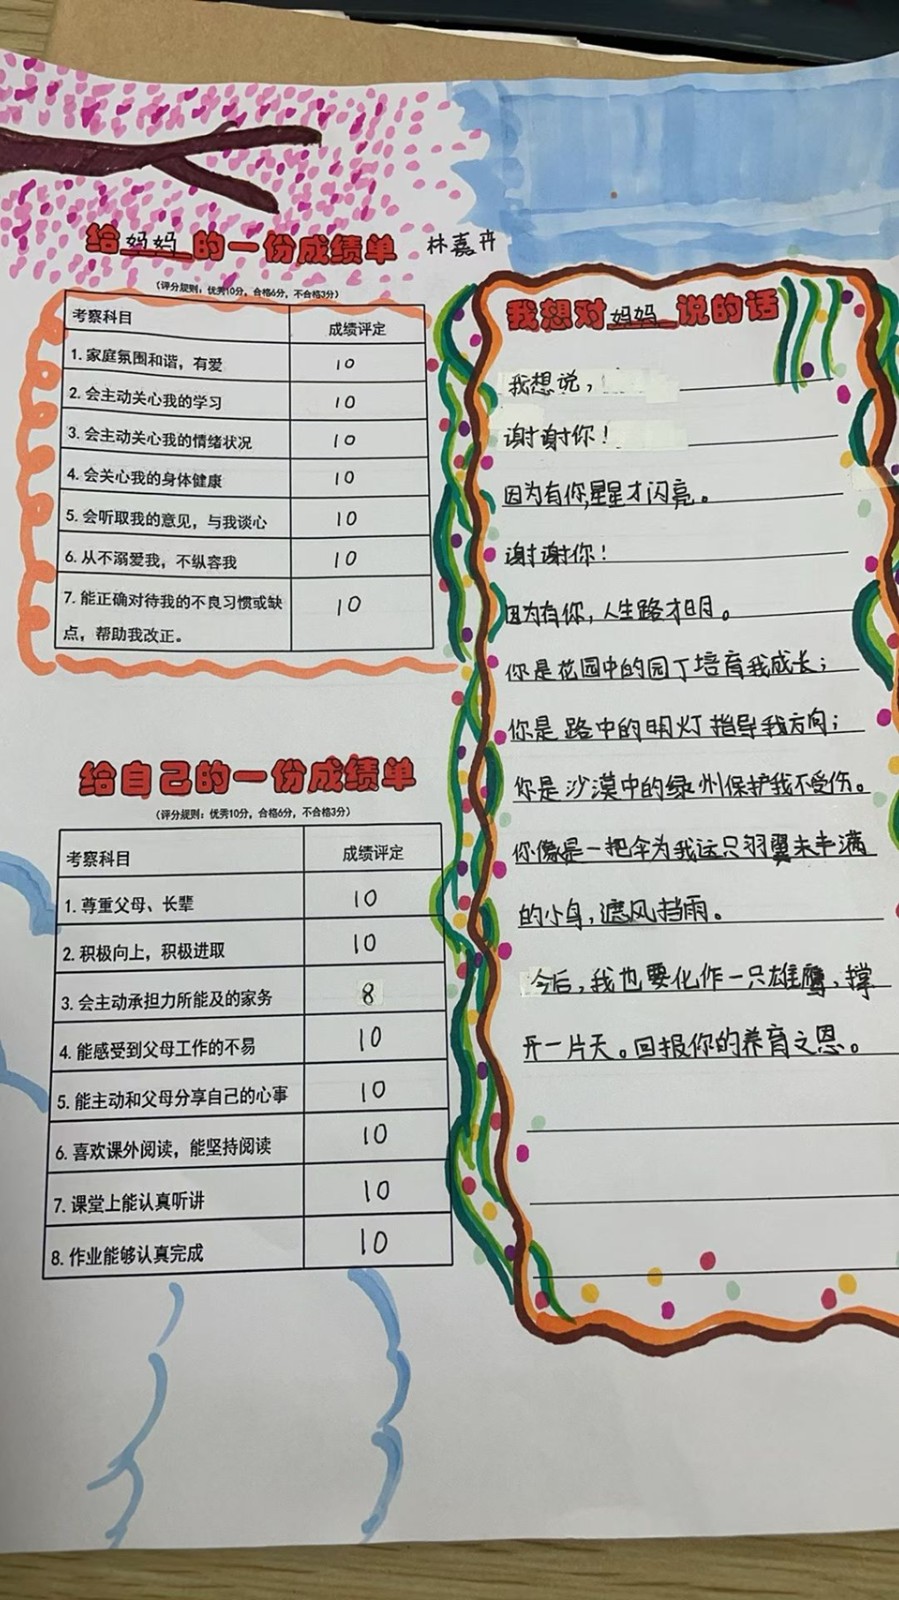 给妈妈的一份成绩单 林嘉卉
（评分规则：优秀10分，合格6分，不合格3分）
考察科目 成绩评定
1. 家庭氛围和谐，有爱 10
2. 会主动关心我的学习 10
3. 会主动关心我的情绪状况 10
4. 会关心我的身体健康 10
5. 会听取我的意见，与我谈心 10
6. 从不溺爱我，不纵容我 10
7. 能正确对待我的不良习惯或缺 10
点，帮助我改正。
给自己的一份成绩单
（评分规则：优秀10分，合格6分，不合格3分）
考察科目 成绩评定
1. 尊重父母、长辈 10
2. 积极向上，积极进取 10
3. 会主动承担力所能及的家务 8
4. 能感受到父母工作的不易 10
5. 能主动和父母分享自己的心事 10
6. 喜欢课外阅读，能坚持阅读 10
7. 课堂上能认真听讲 10
8. 作业能够认真完成 10
我想对妈妈说的话
我想说，
谢谢你！
因为有你，星星才闪亮。
谢谢你！
因为有你，人生路才明。
你是花园中的园丁培育我成长；
你是路中的明灯指导我方向；
你是沙漠中的绿州保护我不受伤。
你像是一把伞为我这只羽翼未丰满
的小鸟，遮风挡雨。
今后，我也要化作一只雄鹰，撑
开一片天。回报你的养育之恩。